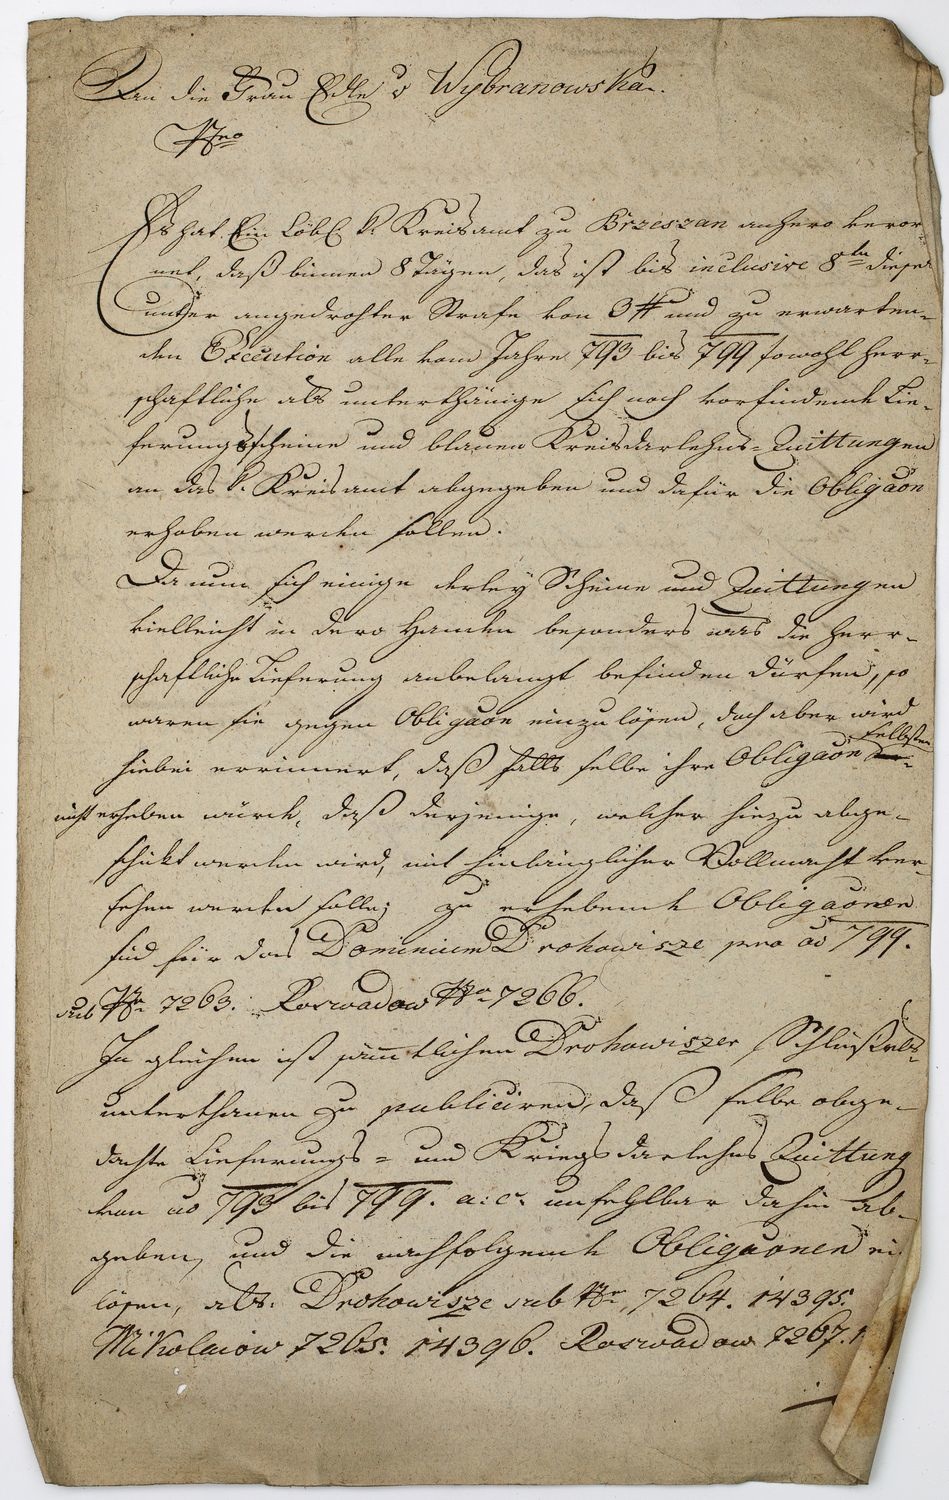 An die Frau Edle v Wybranowska.
Nro
Es hat Ein Löbl. K. Kreisamt zu Brzeszan anhero veror-
net, daß binnen 8 Tägen, das ist bis inclusive 8ten dieses
unter angedrohter Strafe von 3 # und zu erwarten-
den Execution alle vom Jahre 793 bis 799 sowohl herr-
schaftliche als unterthänige sich noch vorfindende Lie-
ferungsscheine und blauen Kreisdarlehns-Quittungen
an das K. Kreisamt abgegeben und dafür die Obligaon
erhoben werden sollen.
Da nun sich einige derley Scheine und Quittungen
vielleicht in dero Handen besonders was die herr-
schaftliche Lieferung anbelangt befinden dürfen, so
waren sie gegen Obligaon einzulösen, doch aber wird
hiebei errinnert, daß falls selbe ihre Obligaon selbsten
nicht erheben würde, daß derjenige, welcher hiezu abge-
schickt werden wird, mit hinlänglicher Vollmacht ver-
sehen werden solle; zu erhebende Obligaonen
sind für das Dominium Drohowisze pro ao 799.
sub Nro 7263. Roswadow Nro 7266.
In gleichen ist sämtlichen Drohowiszer Schlüßels-
unterthanen zu publiciren, daß selbe obge-
dachte Lieferungs- und Kriegsdarlehns Quittung
von ao 793 bis 799. a: c: unfehlbar dahin ab-
geben, und die nachfolgende Obligaonen ei
lösen, als: Drohowisze sub Nro 7264. 14395.
Mikolaiow 7265. 14396. Roswadow 7267. 1